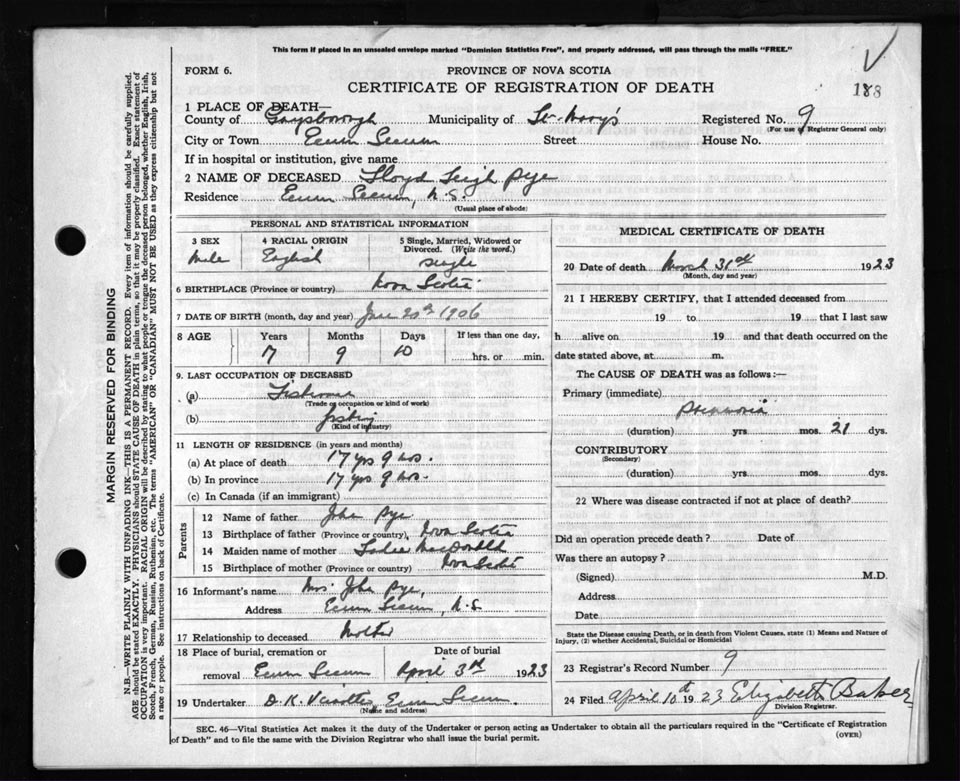 This form if placed in an unsealed envelope marked "Dominion Statistics Free", and properly addressed, will pass through the mails "FREE."
FORM 6.
PROVINCE OF NOVA SCOTIA
CERTIFICATE OF REGISTRATION OF DEATH
188
1 PLACE OF DEATH—
County of Guysborough Municipality of St. Mary's Registered No. 9
(For use of Registrar General only)
City or Town Ecum Secum Street House No.
If in hospital or institution, give name
2 NAME OF DECEASED Lloyd Leigh Pye
Residence Ecum Secum, N.S.
(Usual place of abode)
PERSONAL AND STATISTICAL INFORMATION
3 SEX 4 RACIAL ORIGIN 5 Single, Married, Widowed or Divorced. (Write the word.)
Male English Single
6 BIRTHPLACE (Province or country) Nova Scotia
7 DATE OF BIRTH (month, day and year) 20th 1906
8 AGE Years Months Days If less than one day,
9 10 hrs. or min.
9. LAST OCCUPATION OF DECEASED
(a) Fisherman
(Trade or occupation or kind of work)
(b) fishing
(Kind of industry)
11 LENGTH OF RESIDENCE (in years and months)
(a) At place of death 17 yrs 9
(b) In province 17 yrs 9
(c) In Canada (if an immigrant)
Parents
12 Name of father John Pye
13 Birthplace of father (Province or country) Nova Scotia
14 Maiden name of mother MacDonald
15 Birthplace of mother (Province or country) Nova Scotia
16 Informant's name Mrs. John Pye,
Address Ecum Secum, N.S.
17 Relationship to deceased Mother
18 Place of burial, cremation or removal Date of burial
Ecum Secum April 3rd 1923
19 Undertaker D. K. Ecum Secum.
(Name and address)
MEDICAL CERTIFICATE OF DEATH
20 Date of death March 31st 1923
(Month, day and year)
21 I HEREBY CERTIFY, that I attended deceased from
19 to 19 that I last saw
h alive on 19 and that death occurred on the
date stated above, at m.
The CAUSE OF DEATH was as follows:—
Primary (immediate)
Pneumonia
(duration) yrs mos. 21 dys.
CONTRIBUTORY
(Secondary)
(duration) yrs. mos. dys.
22 Where was disease contracted if not at place of death?
Did an operation precede death? Date of
Was there an autopsy?
(Signed) M.D.
Address
Date
State the Disease causing Death, or in death from Violent Causes, state (1) Means and Nature of
Injury, (2) whether Accidental, Suicidal or Homicidal
23 Registrar's Record Number 9
24 Filed April 10th 1923 Elizabeth Baker
Division Registrar.
SEC. 46—Vital Statistics Act makes it the duty of the Undertaker or person acting as Undertaker to obtain all the particulars required in the "Certificate of Registration
of Death" and to file the same with the Division Registrar who shall issue the burial permit.
(OVER)
MARGIN RESERVED FOR BINDING
N.B.—WRITE PLAINLY WITH UNFADING INK—THIS IS A PERMANENT RECORD. Every item of information should be carefully supplied.
AGE should be stated EXACTLY. PHYSICIANS should STATE CAUSE OF DEATH in plain terms, so that it may be properly classified. Exact statement of
OCCUPATION is very important. RACIAL ORIGIN will be described by stating to what people or tongue the deceased person belonged, whether English, Irish,
Scotch, French, German, Russian, Ruthenian, etc. The terms "AMERICAN" OR "CANADIAN" MUST NOT BE USED as they express citizenship but not
a race or people. See instructions on back of Certificate.